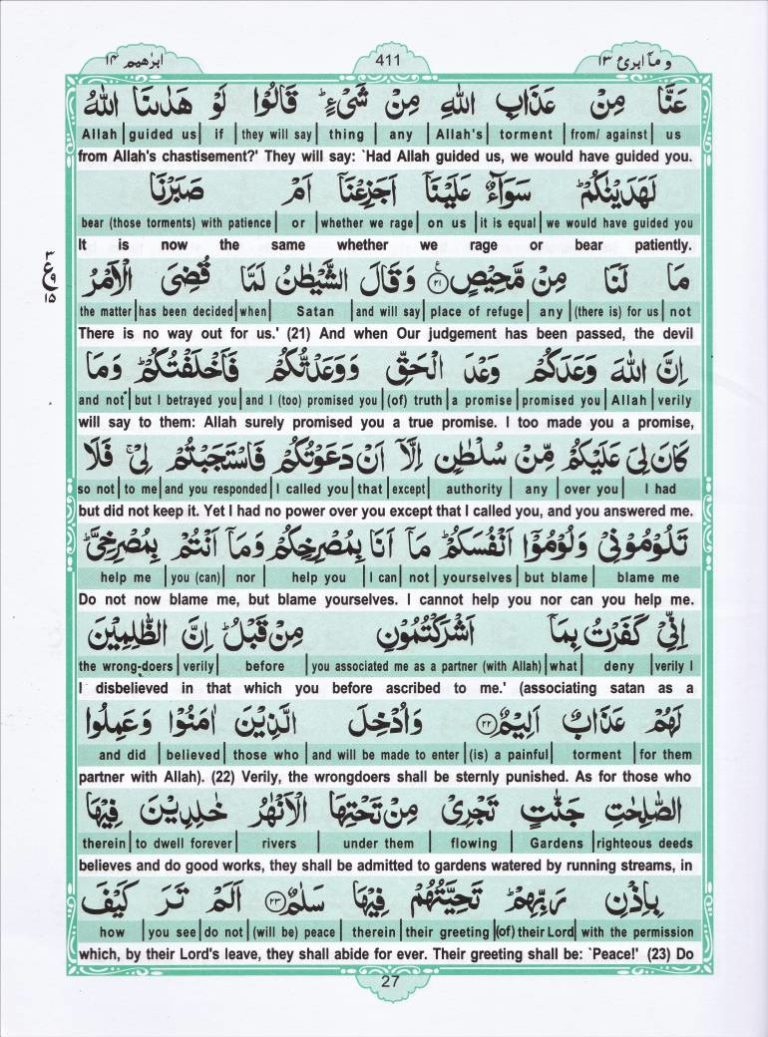 ابرٰهيم ١٤
411
وما ابرئ ١٣
عَنَّا مِنْ عَذَابِ اللّٰهِ مِنْ شَىْءٍ ؕ قَالُوْا لَوْ هَدٰىنَا اللّٰهُ
Allah | guided us | if | they will say | thing | any | Allah's | torment | from/ against | us
from Allah's chastisement?' They will say: `Had Allah guided us, we would have guided you.
لَهَدَيْنٰكُمْ ؕ سَوَآءٌ عَلَيْنَاۤ اَجَزِعْنَاۤ اَمْ صَبَرْنَا
bear (those torments) with patience | or | whether we rage | on us | it is equal | we would have guided you
It is now the same whether we rage or bear patiently.
مَا لَنَا مِنْ مَّحِيْصٍ ﴿٢١﴾ وَقَالَ الشَّيْطٰنُ لَمَّا قُضِىَ الْاَمْرُ
٣
ع ٩
١٥
the matter | has been decided | when | Satan | and will say | place of refuge | any | (there is) for us | not
There is no way out for us.' (21) And when Our judgement has been passed, the devil
اِنَّ اللّٰهَ وَعَدَكُمْ وَعْدَ الْحَقِّ وَوَعَدْتُّكُمْ فَاَخْلَفْتُكُمْ ؕ وَمَا
and not | but I betrayed you | and I (too) promised you | (of) truth | a promise | promised you | Allah | verily
will say to them: Allah surely promised you a true promise. I too made you a promise,
كَانَ لِىَ عَلَيْكُمْ مِّنْ سُلْطٰنٍ اِلَّاۤ اَنْ دَعَوْتُكُمْ فَاسْتَجَبْتُمْ لِىْ ۚ فَلَا
so not | to me | and you responded | I called you | that | except | authority | any | over you | I had
but did not keep it. Yet I had no power over you except that I called you, and you answered me.
تَلُوْمُوْنِىْ وَلُوْمُوْۤا اَنْفُسَكُمْ ؕ مَاۤ اَنَا بِمُصْرِخِكُمْ وَمَاۤ اَنْتُمْ بِمُصْرِخِىَّ ؕ
help me | you (can) | nor | help you | I can | not | yourselves | but blame | blame me
Do not now blame me, but blame yourselves. I cannot help you nor can you help me.
اِنِّىْ كَفَرْتُ بِمَاۤ اَشْرَكْتُمُوْنِ مِنْ قَبْلُ ؕ اِنَّ الظّٰلِمِيْنَ
the wrong-doers | verily | before | you associated me as a partner (with Allah) | what | deny | verily I
I disbelieved in that which you before ascribed to me.' (associating satan as a
لَهُمْ عَذَابٌ اَلِيْمٌ ﴿٢٢﴾ وَاُدْخِلَ الَّذِيْنَ اٰمَنُوْا وَعَمِلُوا
and did | believed | those who | and will be made to enter | (is) a painful | torment | for them
partner with Allah). (22) Verily, the wrongdoers shall be sternly punished. As for those who
الصّٰلِحٰتِ جَنّٰتٍ تَجْرِىْ مِنْ تَحْتِهَا الْاَنْهٰرُ خٰلِدِيْنَ فِيْهَا
therein | to dwell forever | rivers | under them | flowing | Gardens | righteous deeds
believes and do good works, they shall be admitted to gardens watered by running streams, in
بِاِذْنِ رَبِّهِمْ ؕ تَحِيَّتُهُمْ فِيْهَا سَلٰمٌ ﴿٢٣﴾ اَلَمْ تَرَ كَيْفَ
how | you see | do not | (will be) peace | therein | their greeting | (of) their Lord | with the permission
which, by their Lord's leave, they shall abide for ever. Their greeting shall be: `Peace!' (23) Do
27